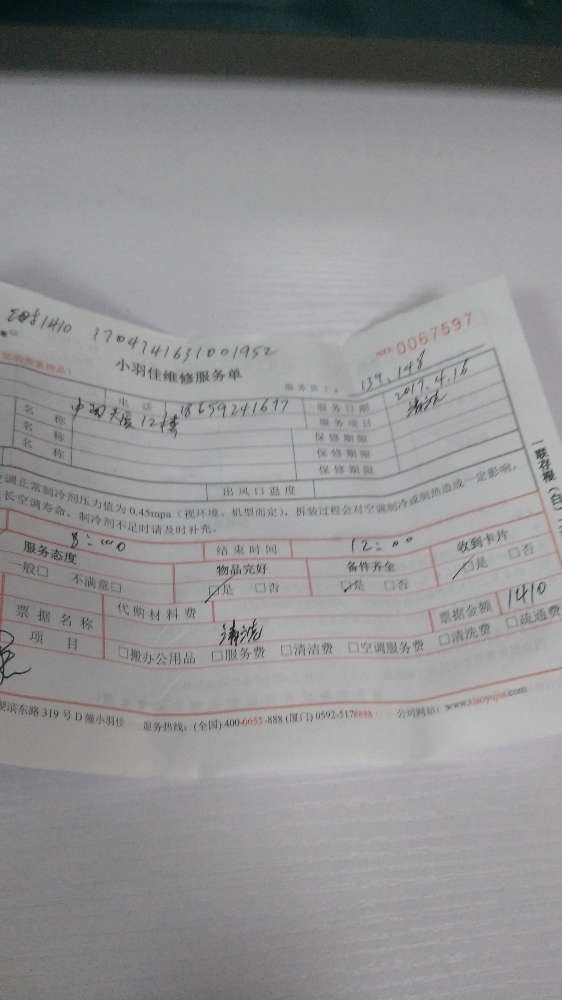 1410 1704741631001952
NO: 0057597
小羽佳维修服务单
服务员工: 139.148
电话 18659241697 服务日期 2017.4.16
12楼 服务项目 清洗
名称 保修期限
名称 保修期限
名称 保修期限
出风口温度
空调正常制冷剂压力值为0.45mpa（视环境、机型而定），拆装过程会对空调制冷或制热造成一定影响。
长空调寿命。制冷剂不足时请及时补充。
8:00 结束时间 12:00
服务态度 物品完好 备件齐全 收到卡片
一般□ 不满意□ □是 □否 □是 □否 □是 □否
票据名称 代购材料费 清洗 票据金额 1410
项目 □搬办公用品 □服务费 □清洁费 □空调服务费 □清洗费 □疏通费
滨东路319号D幢小羽佳 服务热线：(全国) 400-0055-888 (厦门) 0592-5176888 公司网站：www.xiaoyujia.com
一联存根（白）